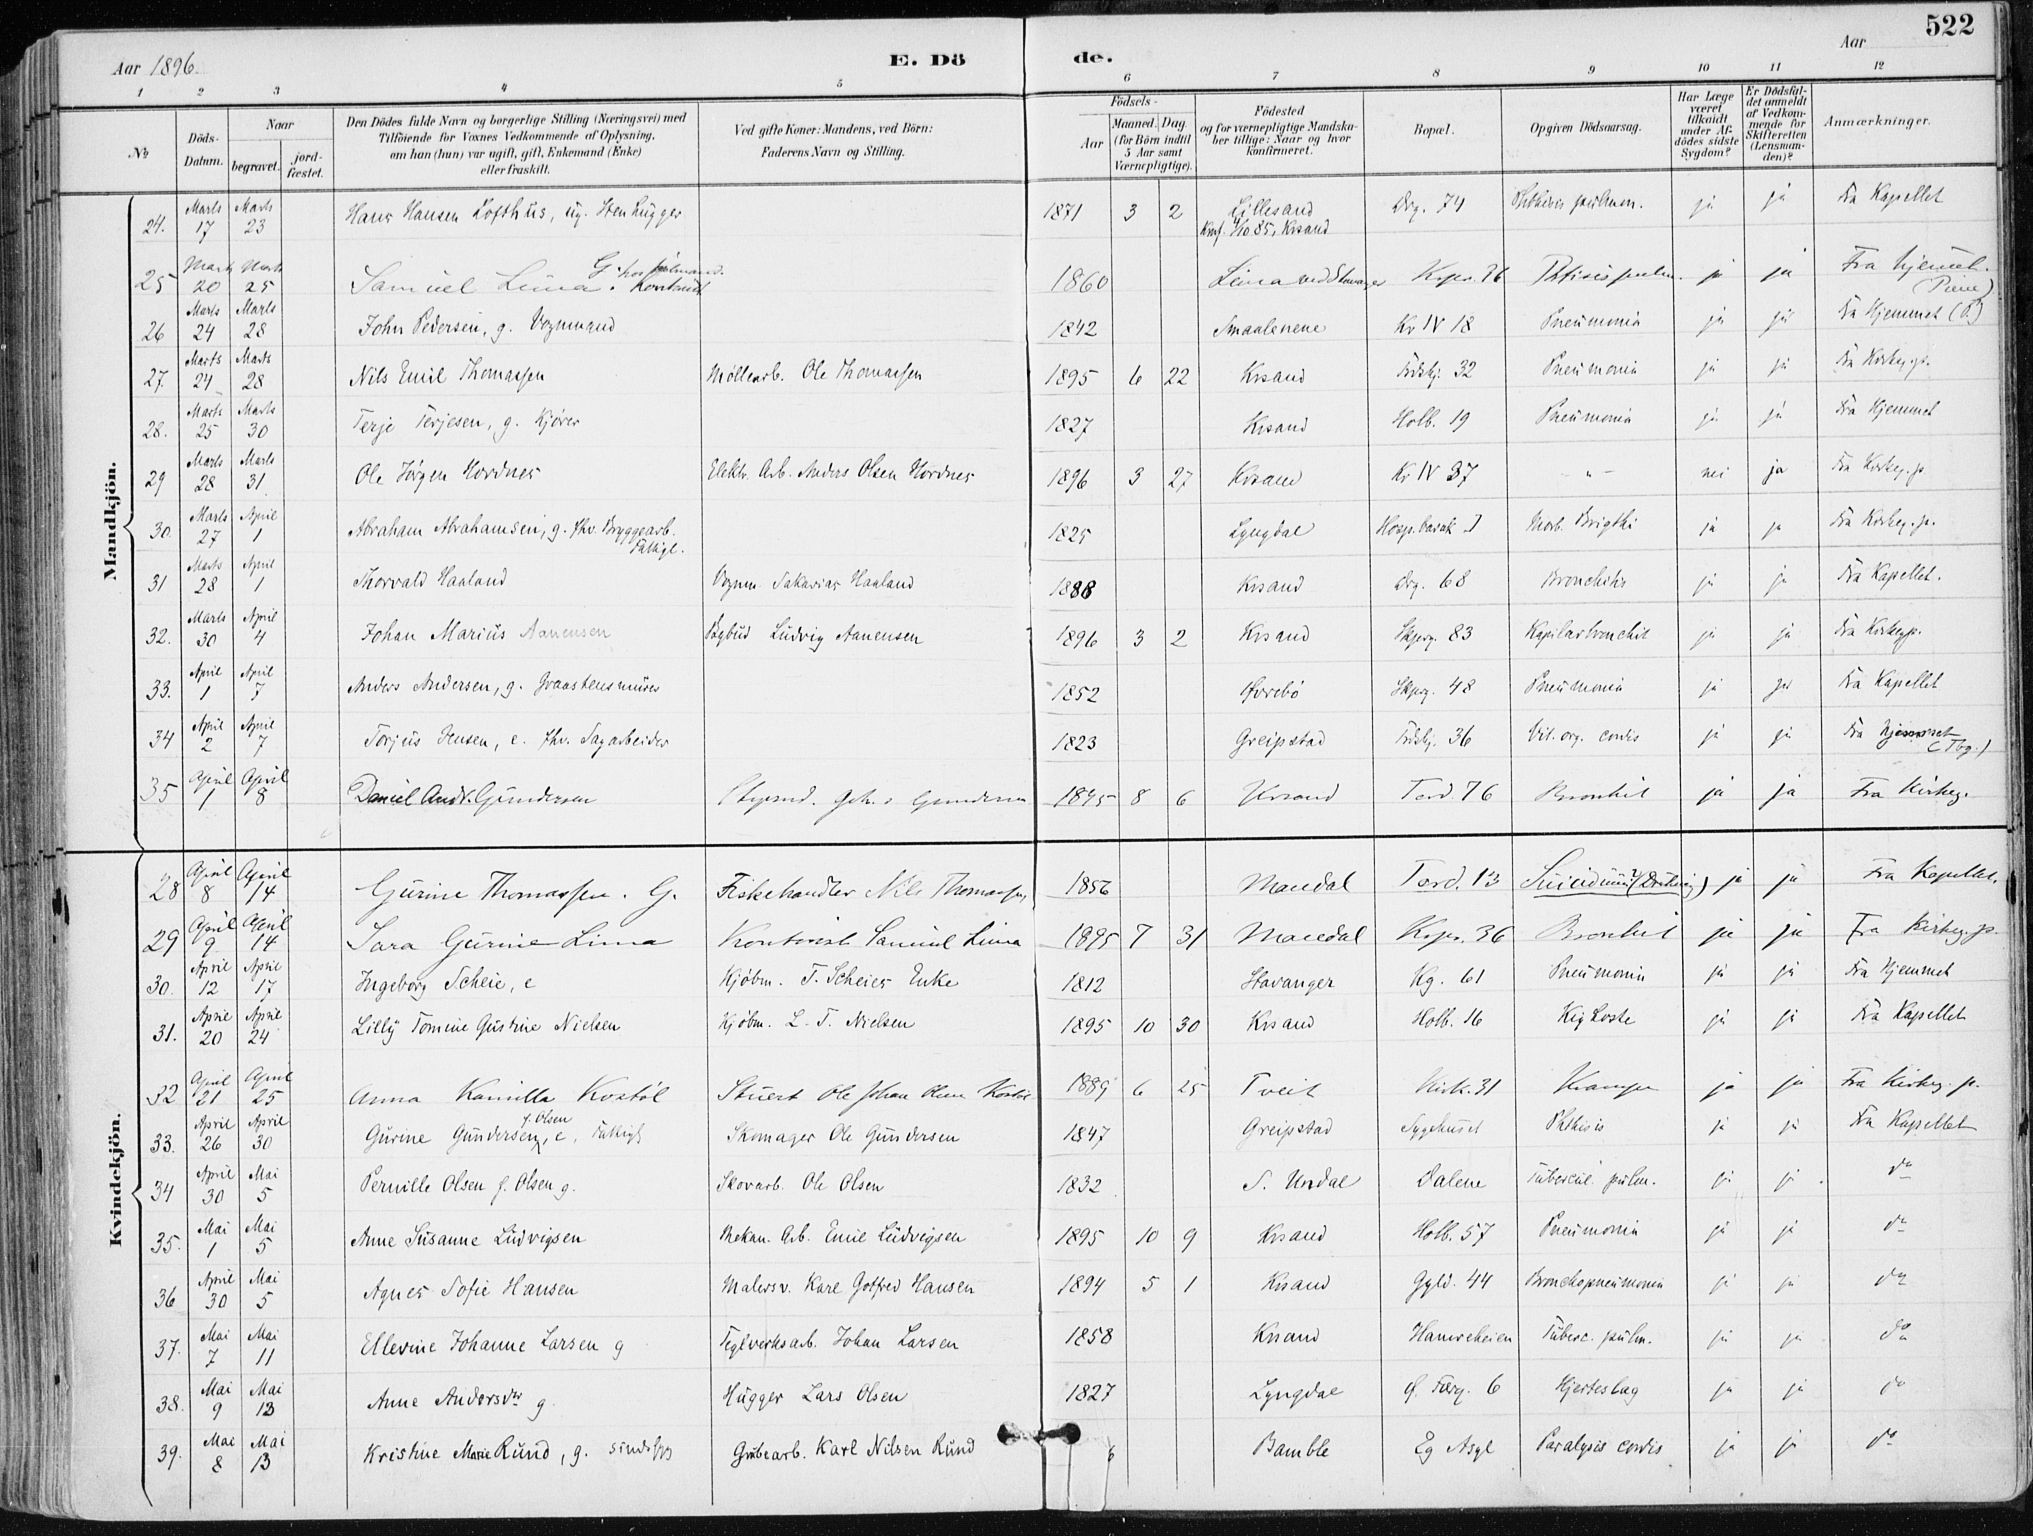 522
Aar 1896
E. Dö
de.
Aar
1 2 3 4 5 6 7 8 9 10 11 12
No
Döds-Datum.
Naar
begravet.
jord-fæstet.
Den Dödes fulde Navn og borgerlige Stilling (Næringsvei) med
Tilföiende for Voxnes Vedkommende af Oplysning,
om han (hun) var ugift, gift, Enkemand (Enke)
eller fraskilt.
Ved gifte Koner: Mandens, ved Börn:
Faderens Navn og Stilling.
Födsels-
Aar
Maaned. Dag.
(for Börn indtil
5 Aar samt
Værnepligtige).
Födested
og for værnepligtige Mandska-
ber tillige: Naar og hvor
konfirmeret.
Bopæl.
Opgiven Dödsaarsag.
Har Læge
været
tilkaldt
under Af-
dödes sidste
Sygdom?
Er Dödsfal-
det anmeldt
af Vedkom-
mende for
Skifteretten
(Lensman-
den)?
Anmærkninger.
Mandkjön.
24. Marts 17 Marts 23 Hans Hansen Lofthus, ug. Stenhugger 1871 3 2 Lillesand Drg. 74 Phthisis pulmon. ja ja Fra Kapellet
Konf. 4/10 85, Krsand
25 Marts 20 Marts 25 Samuel Lima G. Kontorist 1860 Lima ved Stavanger 36 Phtisis pulm. ja ja Fra Hjemmet.
26 Marts 24 Marts 28 John Pedersen, g. Vognmand 1842 Smaalenene Kv IV 18 Pneumonia ja ja Fra Hjemmet (P.)
27. Marts 24 Marts 28 Nils Emil Thomassen Möllearb. Ole Thomassen 1895 6 22 Krsand 32 Pneumonia ja ja Fra Kirkeg.p.
28. Marts 25 Marts 30 Terje Terjesen, g. Kjører 1827 Krsand Holb. 19 Pneumonia ja ja Fra Hjemmet
29 Marts 28 Marts 31 Ole Jörgen Hordnes Elektr. Arb. Anders Olsen Hordnes 1896 3 27 Krsand Kv IV 37 - " - nei ja Fra Kirkeg.p.
30. Marts 27 April 1 Abraham Abrahamsen, g. fhv. Bryggearb. Fattigl. 1825 Lyngdal Hosp. barak Morb. Brigthi ja ja Fra Kirkeg.p.
31 Marts 28 April 1 Thorvald Haaland Vognm. Sakarias Haaland 1888 Krsand Drg. 68 Bronchitis ja ja Fra Kapellet.
32. Marts 30 April 4 Johan Marius Aanensen Bybud Ludvig Aanensen 1896 3 2 Krsand Skprg. 83 Kapilarbronchit ja ja Fra Kirkegp.
33. April 1 April 7 Anders Andersen, g. Graastensmurer 1852 Øvrebö Skprg. 48 Pneumonia ja ja Fra Kapellet
34 April 2 April 7 Torjus Jensen, e. fhv. Sagarbeider 1823 Greipstad 36 Vit. org. cordis ja ja Fra Hjemmet
35 April 1 April 8 Daniel Andr. Gundersen Gundersen 1895 8 6 Krsand Tord. 76 Bronkit ja ja Fra Kirkeg.
Kvindekjön.
28 April 8 April 14 Gurine Thomassen. G. Fiskehandler Nils Thomassen 1856 Mandal Tord. 13 Suicidium (Drukning) ja ja Fra Kapellet.
29 April 9 April 14 Sara Gurine Lima Kontorist Samuel Lima 1895 7 31 Mandal 36 Bronkit ja ja Fra Kirkeg.p.
30. April 12 April 17 Ingeborg Scheie, e Kjöbm. T. Scheies Enke 1812 Stavanger Kg. 61 Pneumonia ja ja Fra Hjemmet
31. April 20 April 24 Lilly Tomine Gustine Nielsen Kjöbm. L. T. Nielsen 1895 10 30 Krsand Holb. 16 Kighoste ja ja Fra Kapellet
32 April 21 April 25 Anna Kamilla Kostöl Stuert Ole Johan Olsen Kostöl 1889 6 25 Tveit Kirk. 31 Krampe ja ja Fra Kirkeg.p.
33. April 26 April 30 Gurine Gundersen f. Olsen, e, Fattigl. Skomager Ole Gundersen 1847 Greipstad Sygehuset Phthisis ja ja Fra Kapellet
34 April 30 Mai 5 Pernille Olsen f. Olsen g. Skovarb. Ole Olsen 1832 S. Undal Dalene Tubercul. pulm. ja ja do
35. Mai 1 Mai 5 Anne Susanne Ludvigsen Mekan. Arb. Emil Ludvigsen 1895 10 9 Krsand Holb. 57 Pneumonia ja ja do
36 April 30 Mai 5 Agnes Sofie Hansen Malersv. Karl Gotfred Hansen 1894 5 1 Krsand Gyld. 44 Bronchopneumonia ja ja do
37. Mai 7 Mai 11 Ellevine Johanne Larsen g Teglverksarb. Johan Larsen 1858 Krsand Hamreheien Tuberc. pulm. ja ja do
38. Mai 9 Mai 13 Anne Andersdr g. Hugger Lars Olsen 1827 Lyngdal 6 Hjerteslag ja ja do
39. Mai 8 Mai 13 Kristine Marie Rund, g. sindssyg Grubearb. Karl Nilsen Rund 6 Bamble Eg Asyl Paralysis cordis ja ja do